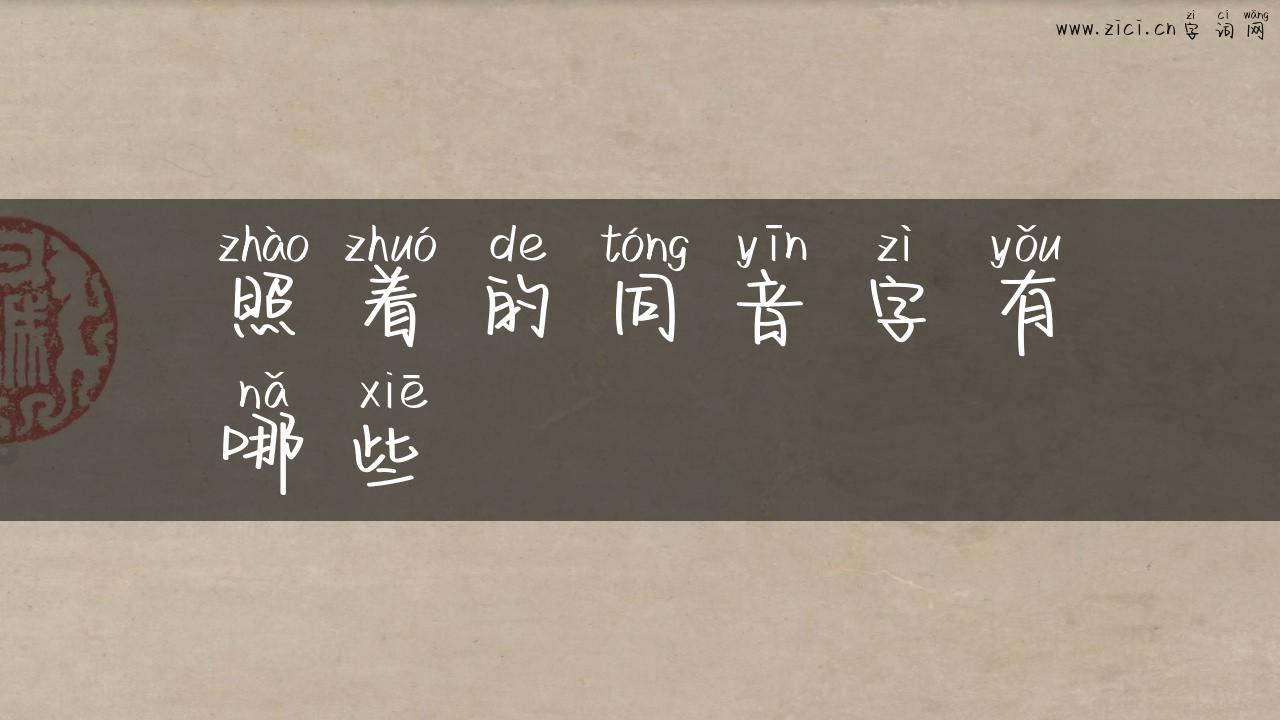 zì cí wǎng
www.zici.cn 字词网
zhào zhuó de tóng yīn zì yǒu
照着的同音字有
nǎ xiē
哪些